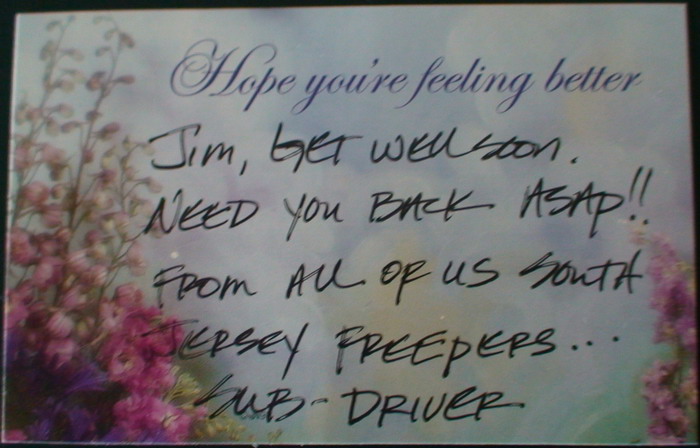 Hope you're feeling better
Jim, GET WELL SOON.
NEED YOU BACK ASAP!!
FROM ALL OF US SOUTH
JERSEY FREEPERS...
SUB-DRIVER